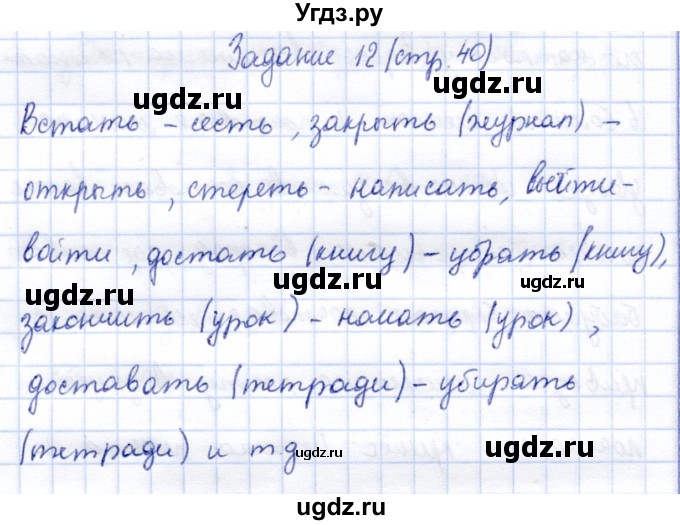 Угдз.ру
Задание 12 (стр. 40)
ugdz.ru ugdz.ru
Встать – сесть, закрыть (журнал) –
открыть, стереть – написать, выйти –
ugdz.ru
войти, достать (книгу) – убрать (книгу),
ugdz.ru ugdz.ru
закончить (урок) – начать (урок),
доставать (тетради) – убирать
(тетради) и т.д
ugdz.ru ugdz.ru
ugdz.ru